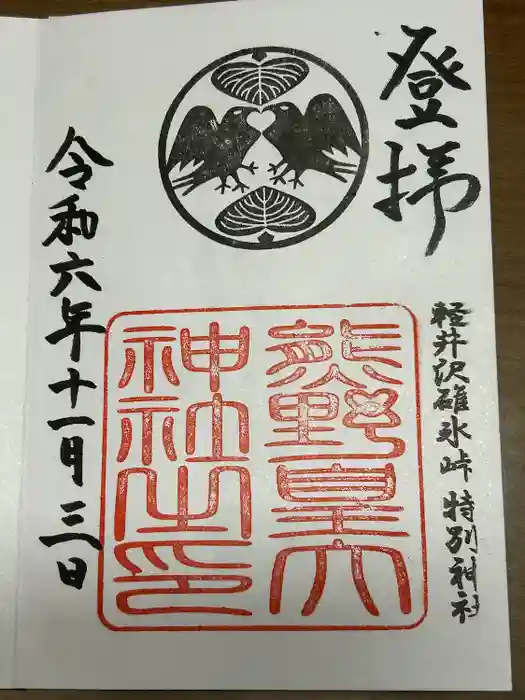 登拝
軽井沢碓氷峠 特別神社
熊野皇大
神社之印
令和六年十一月三日